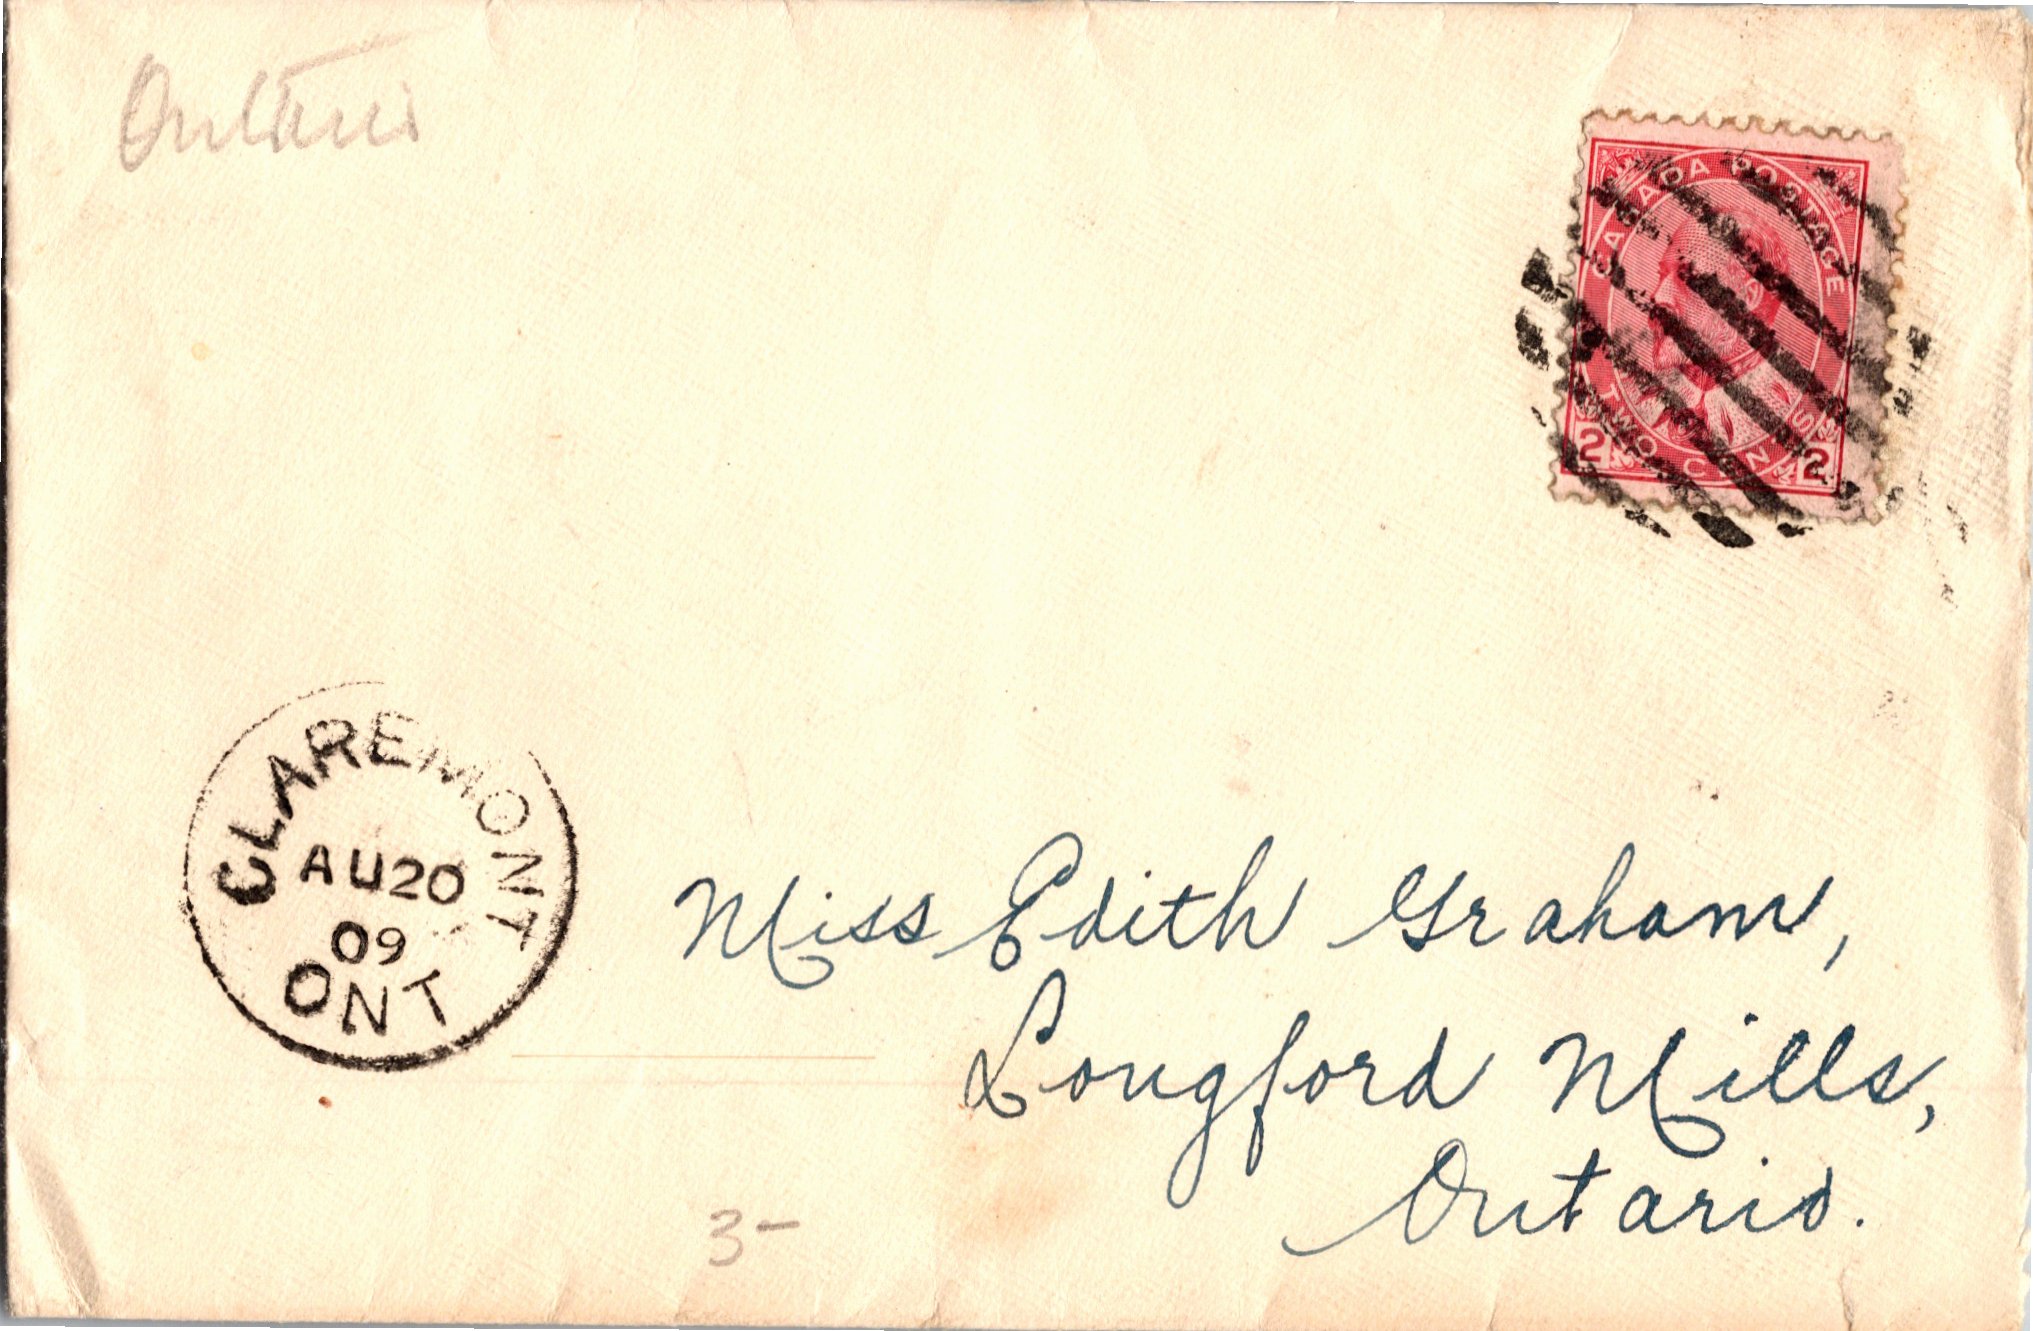 Ontario
CANADA POSTAGE
TWO CENTS
2 2
CLAREMONT
AU 20
09
ONT
Miss Edith Graham,
Longford Mills,
Ontario.
3-